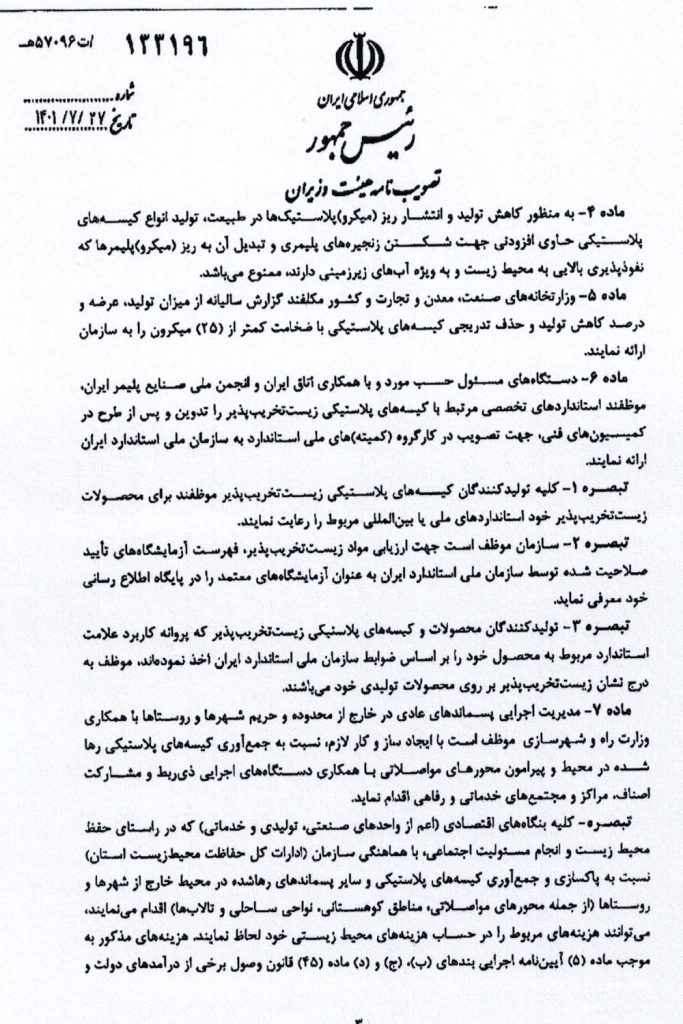 ۱۳۳۱۹۶ /ت۵۷۰۹۶هـ
جمهوری اسلامی ایران
رئیس جمهور
تصویب نامه هیئت وزیران
شماره
تاریخ ۱۴۰۱/۷/۲۷
ماده ۴- به منظور کاهش تولید و انتشار ریز (میکرو)پلاستیک‌ها در طبیعت، تولید انواع کیسه‌های
پلاستیکی حاوی افزودنی جهت شکستن زنجیره‌های پلیمری و تبدیل آن به ریز (میکرو)پلیمرها که
نفوذپذیری بالایی به محیط زیست و به ویژه آب‌های زیرزمینی دارند، ممنوع می‌باشد.
ماده ۵- وزارتخانه‌های صنعت، معدن و تجارت و کشور مکلفند گزارش سالیانه از میزان تولید، عرضه و
درصد کاهش تولید و حذف تدریجی کیسه‌های پلاستیکی با ضخامت کمتر از (۲۵) میکرون را به سازمان
ارائه نمایند.
ماده ۶- دستگاه‌های مسئول حسب مورد و با همکاری اتاق ایران و انجمن ملی صنایع پلیمر ایران،
موظفند استانداردهای تخصصی مرتبط با کیسه‌های پلاستیکی زیست‌تخریب‌پذیر را تدوین و پس از طرح در
کمیسیون‌های فنی، جهت تصویب در کارگروه (کمیته)های ملی استاندارد به سازمان ملی استاندارد ایران
ارائه نمایند.
تبصره ۱- کلیه تولیدکنندگان کیسه‌های پلاستیکی زیست‌تخریب‌پذیر موظفند برای محصولات
زیست‌تخریب‌پذیر خود استانداردهای ملی یا بین‌المللی مربوط را رعایت نمایند.
تبصره ۲- سازمان موظف است جهت ارزیابی مواد زیست‌تخریب‌پذیر، فهرست آزمایشگاه‌های تأیید
صلاحیت شده توسط سازمان ملی استاندارد ایران به عنوان آزمایشگاه‌های معتمد را در پایگاه اطلاع رسانی
خود معرفی نماید.
تبصره ۳- تولیدکنندگان محصولات و کیسه‌های پلاستیکی زیست‌تخریب‌پذیر که پروانه کاربرد علامت
استاندارد مربوط به محصول خود را بر اساس ضوابط سازمان ملی استاندارد ایران اخذ نموده‌اند، موظف به
درج نشان زیست‌تخریب‌پذیر بر روی محصولات تولیدی خود می‌باشند.
ماده ۷- مدیریت اجرایی پسماندهای عادی در خارج از محدوده و حریم شهرها و روستاها با همکاری
وزارت راه و شهرسازی موظف است با ایجاد ساز و کار لازم، نسبت به جمع‌آوری کیسه‌های پلاستیکی رها
شده در محیط و پیرامون محورهای مواصلاتی با همکاری دستگاه‌های اجرایی ذی‌ربط و مشارکت
اصناف، مراکز و مجتمع‌های خدماتی و رفاهی اقدام نماید.
تبصره- کلیه بنگاه‌های اقتصادی (اعم از واحدهای صنعتی، تولیدی و خدماتی) که در راستای حفظ
محیط زیست و انجام مسئولیت اجتماعی، با هماهنگی سازمان (ادارات کل حفاظت محیط‌زیست استان)
نسبت به پاکسازی و جمع‌آوری کیسه‌های پلاستیکی و سایر پسماندهای رهاشده در محیط خارج از شهرها و
روستاها (از جمله محورهای مواصلاتی، مناطق کوهستانی، نواحی ساحلی و تالاب‌ها) اقدام می‌نمایند،
می‌توانند هزینه‌های مربوط را در حساب هزینه‌های محیط زیستی خود لحاظ نمایند. هزینه‌های مذکور به
موجب ماده (۵) آیین‌نامه اجرایی بندهای (ب)، (ج) و (د) ماده (۴۵) قانون وصول برخی از درآمدهای دولت و